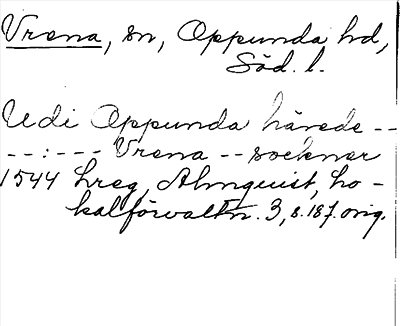 Vrena, sn, Oppunda hd,
Söd. l.
Udi Oppunda härede --
--:--- Vrena -- socknar
1544 hreg, Almquist, Lo-
kalförvaltn. 3, s. 187. orig.